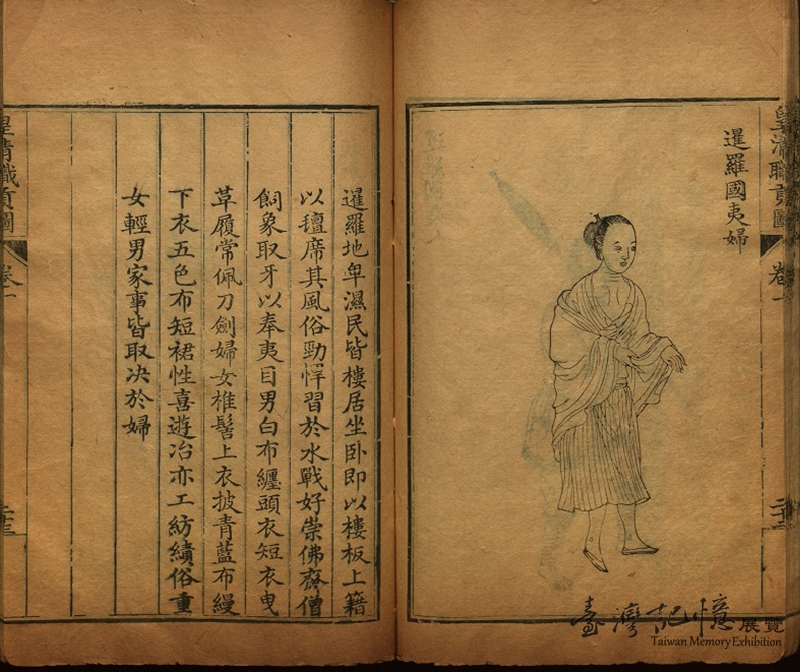 皇清職貢圖
卷一
二十三
暹羅國夷婦
暹羅地卑濕民皆樓居坐卧即以樓板上籍
以氊席其風俗勁悍習於水戰好崇佛齋僧
飼象取牙以奉夷目男白布纏頭衣短衣曳
草履常佩刀劍婦女椎髻上衣披青藍布縵
下衣五色布短裙性喜遊冶亦工紡績俗重
女輕男家事皆取决於婦
皇清職貢圖
卷一
臺灣記憶展覽
Taiwan Memory Exhibition